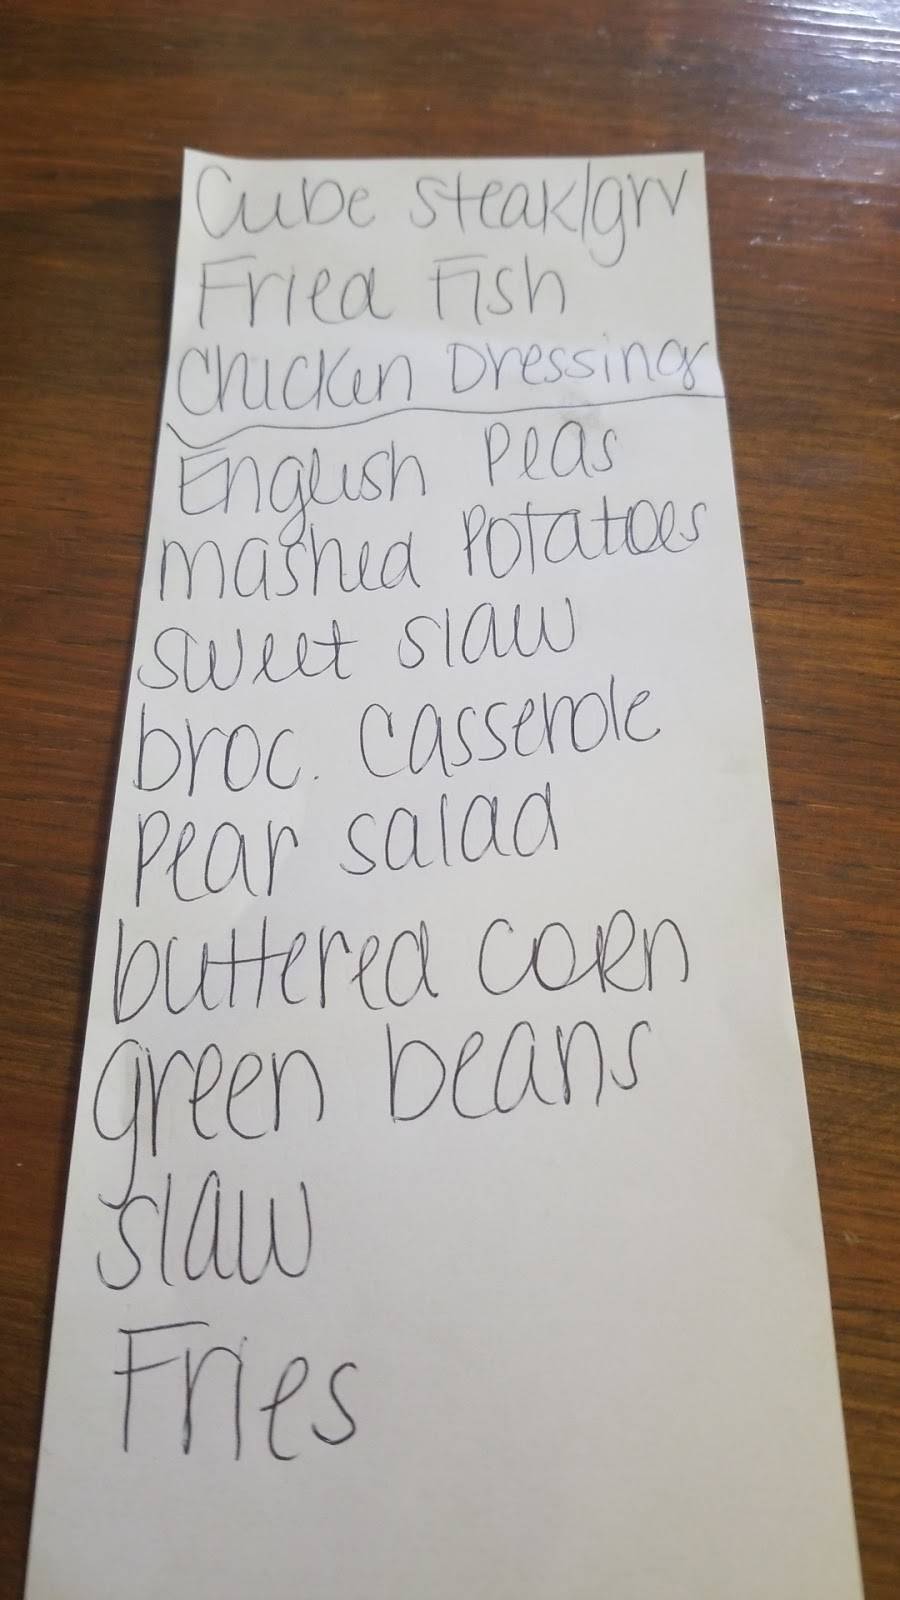 Cube steak/grv
Fried Fish
Chicken Dressing
English Peas
mashed Potatoes
sweet slaw
broc. casserole
Pear salad
buttered corn
green beans
slaw
Fries